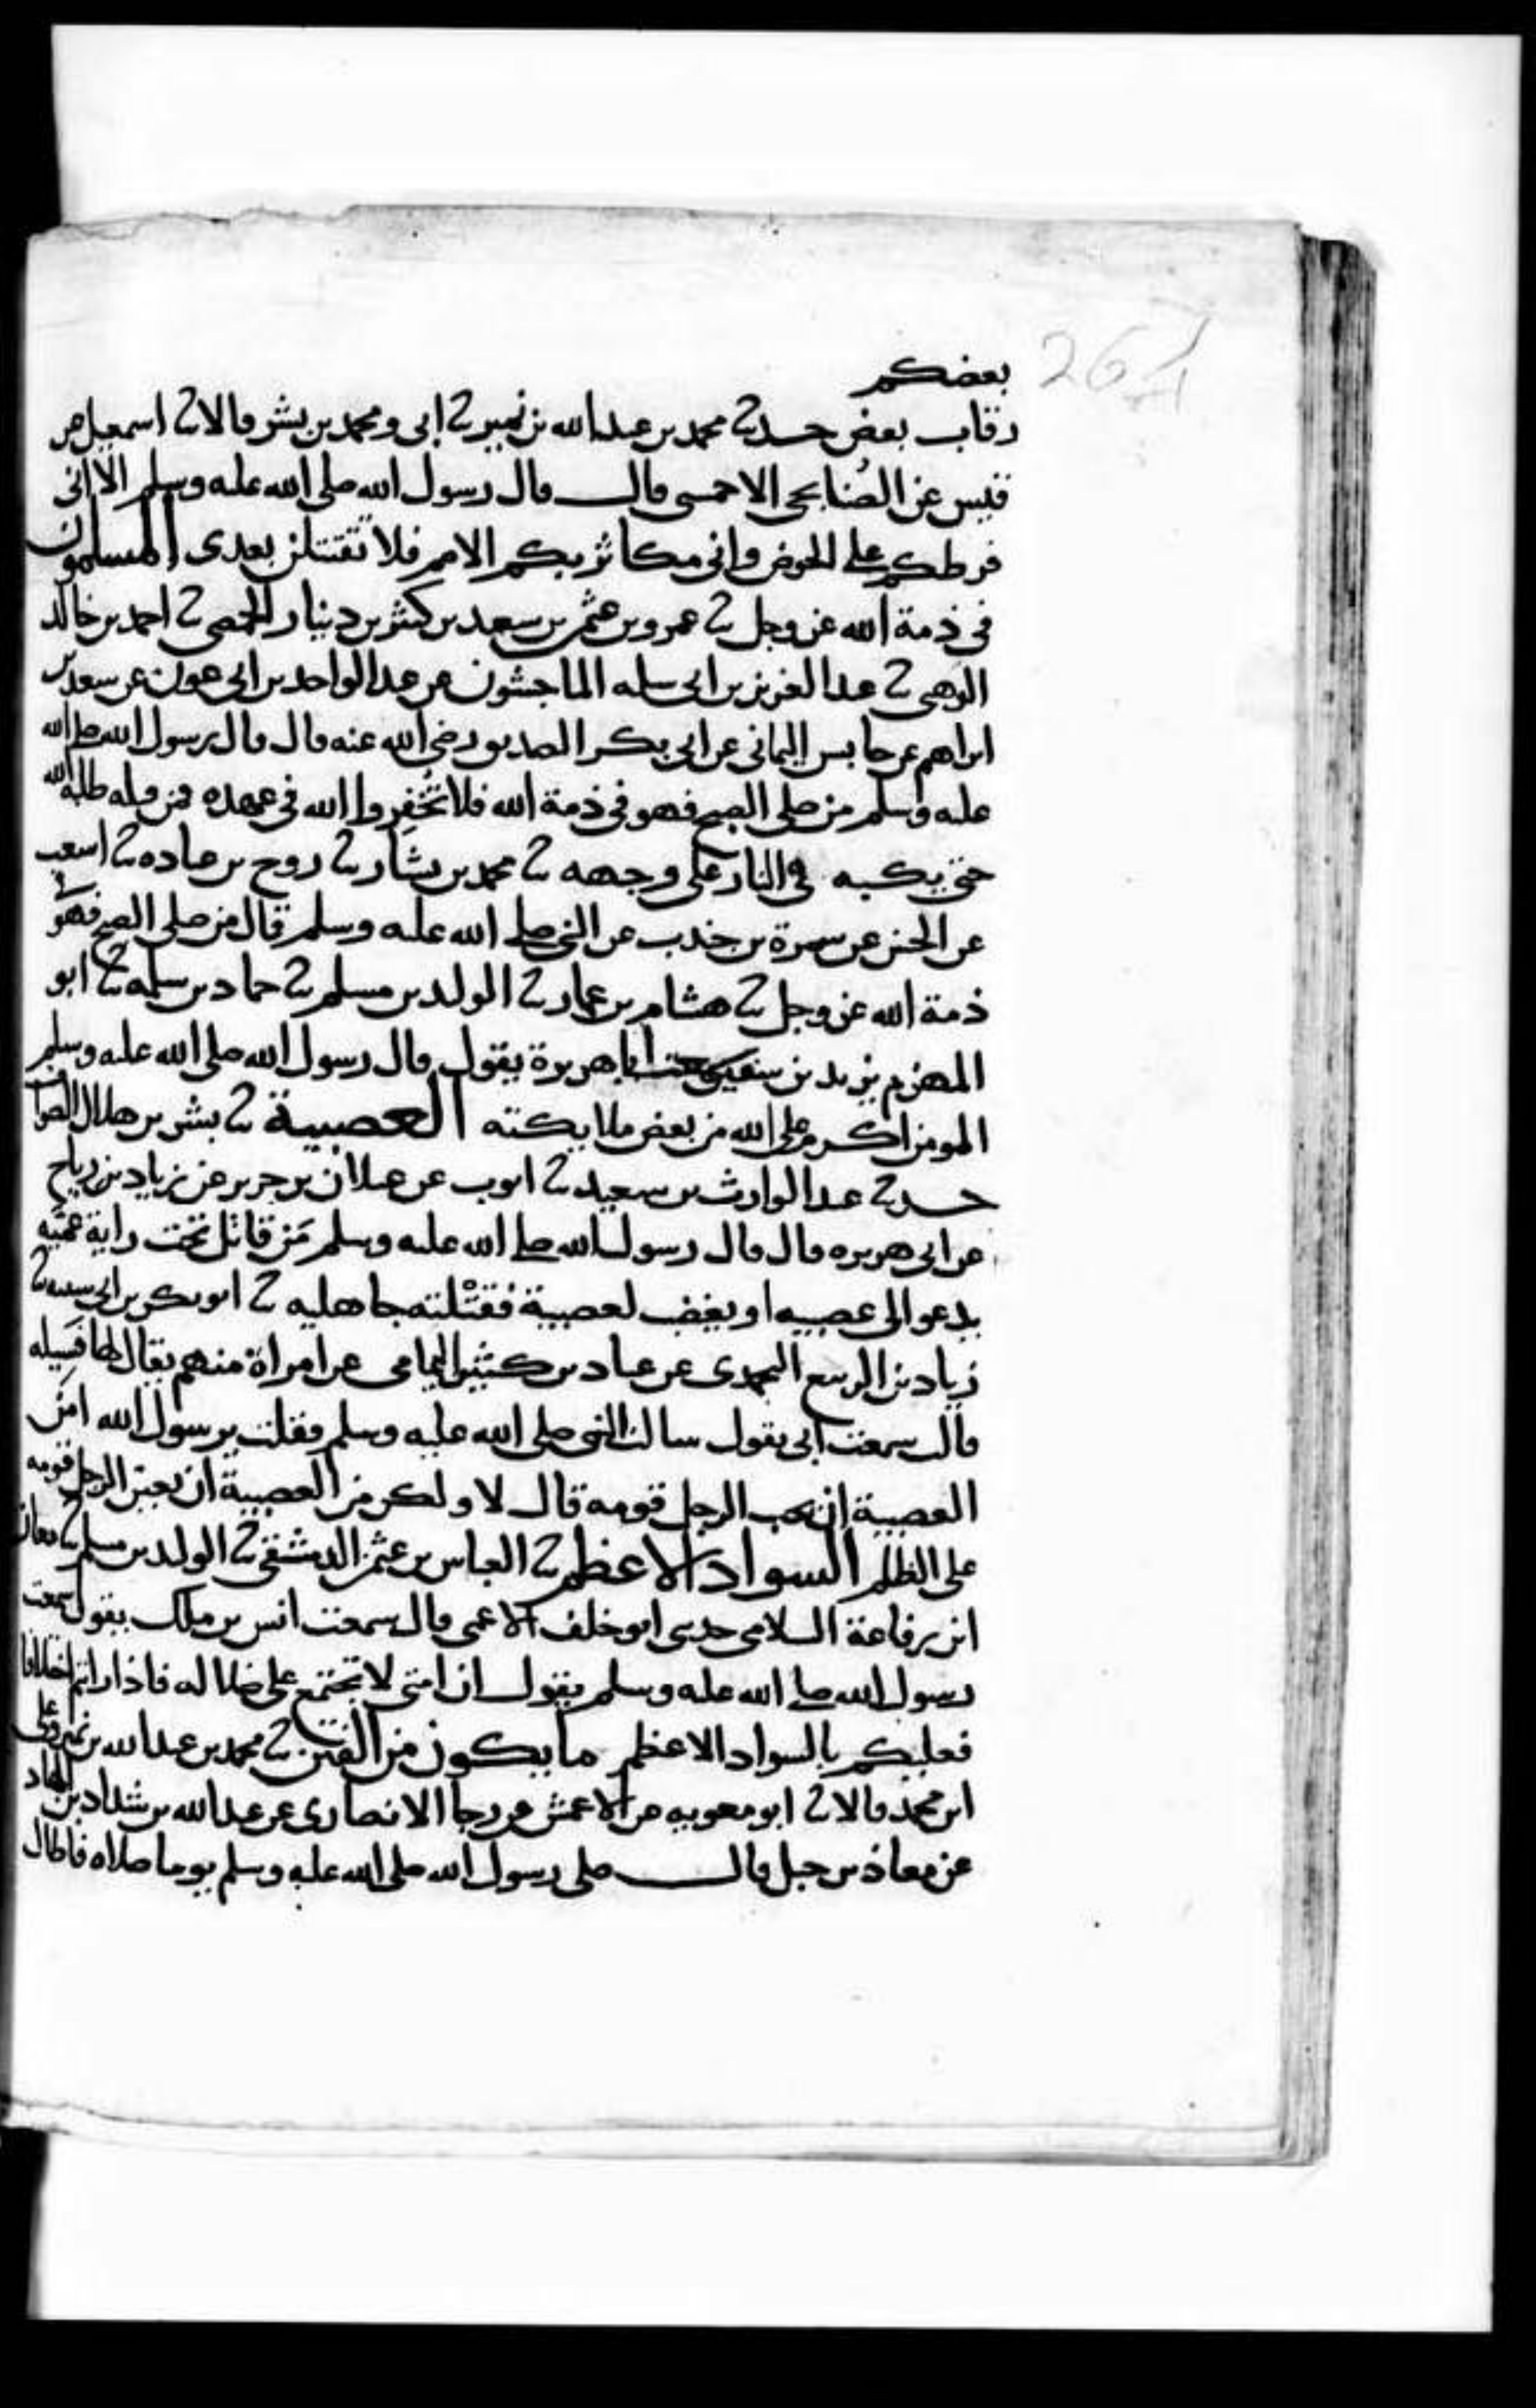 264
بعضكم
رقاب بعض حدثنا محمد بن عبد الله بن نمير ثنا ابى ومحمد بن بشر قالا ثنا اسمعيل عن
قيس عن الصُنابحى الاحمسى قال قال رسول الله صلى الله عليه وسلم الا انى
فرطكم على الحوض وانى مكاثر بكم الامم فلا تقتتلن بعدى المسلمون
فى ذمة الله عز وجل ثنا عمرو بن عثمن بن سعيد بن كثير بن دينار الحمصى ثنا احمد بن خالد
الوهبى ثنا عبد العزيز بن ابى سلمه الماجشون عن عبد الواحد بن ابى عون عن سعد بن
ابراهيم عن حابس اليمانى عن ابى بكر الصديق رضى الله عنه قال قال رسول الله صلى الله
عليه وسلم من صلى الصبح فهو فى ذمة الله فلا تُخفِروا الله فى عهده فمن قتله طلبه الله
حتى يكبه فى النار على وجهه ثنا محمد بن بشار ثنا روح بن عباده ثنا اشعث
عن الحسن عن سمرة بن جندب عن النبى صلى الله عليه وسلم قال من صلى الصبح فهو فى
ذمة الله عز وجل ثنا هشام بن عمار ثنا الوليد بن مسلم ثنا حماد بن سلمه ثنا ابو
المهزم يزيد بن سفين سمعت ابا هريرة يقول قال رسول الله صلى الله عليه وسلم
المومن اكرم على الله من بعض ملايكته العصبية ثنا بشر بن هلال الصواف
حدثنا عبد الوارث بن سعيد ثنا ايوب عن غيلان بن جرير عن زياد بن رياح
عن ابى هريره قال قال رسول الله صلى الله عليه وسلم مَن قاتل تحت راية عميّه
يدعو الى عصبيه او يغضب لعصبية فقتْلته جاهليه ثنا ابو بكر بن ابى شيبه ثنا
زياد بن الربيع اليحمدى عن عباد بن كثير اليمامى عن امراة منهم يقال لها فسيله
قالت سمعت ابى يقول سالت النبى صلى الله عليه وسلم فقلت يرسول الله امن
العصبية ان يحب الرجل قومه قال لا ولكن من العصبية ان يعين الرجل قومه
على الظلم السواد الاعظم ثنا العباس بن عثمن الدمشقى ثنا الوليد بن مسلم ثنا معان
ابن رفاعة السلامى حدثنى ابو خلف الاعمى قال سمعت انس بن ملك يقول سمعت
رسول الله صلى الله عليه وسلم يقول ان امتى لا تجتمع على ضلاله فاذا رايتم اختلافا
فعليكم بالسواد الاعظم ما يكون من الفتن ثنا محمد بن عبد الله بن نمير وعلى
ابن محمد قالا ثنا ابو معويه عن الاعمش عن رجا الانصارى عن عبد الله بن شداد بن الهاد
عن معاذ بن جبل قال صلى رسول الله صلى الله عليه وسلم يوما صلاه فاطال